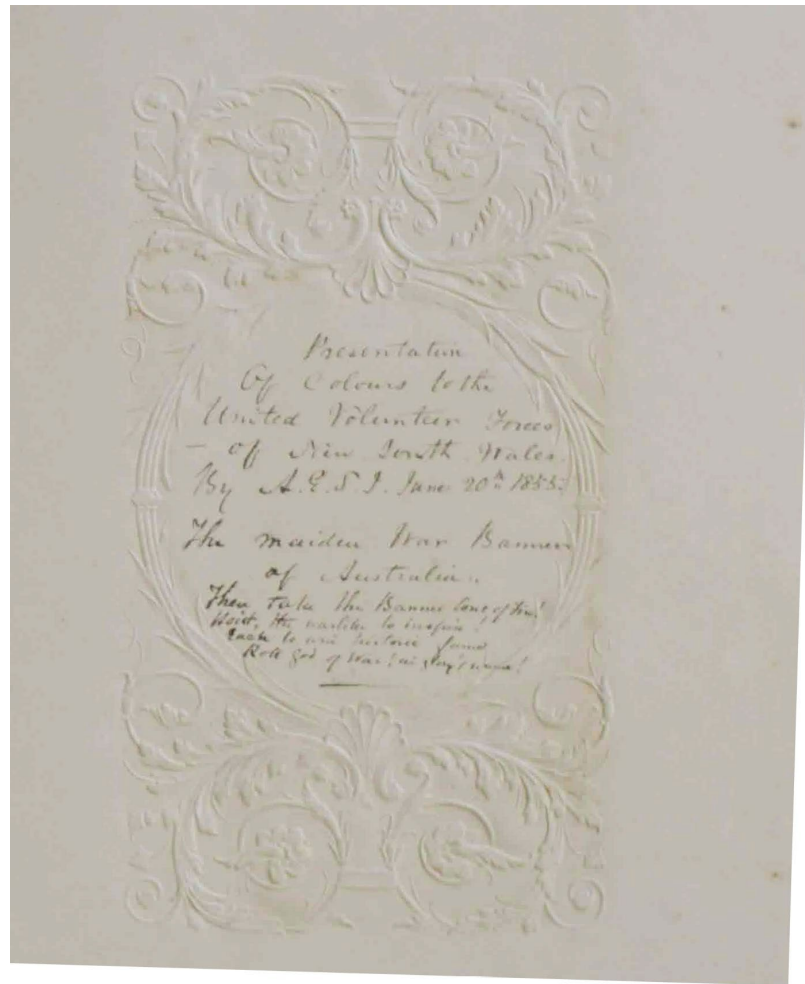 Presentation
Of Colours to the
United Volunteer Forces
– of New South Wales.
By A.E.S.I. June 20th 1855.
The maiden War Banner
of Australia.
Then take the Banner
Hoist, the warlike to inspire!
Each to win historic fame
Roll God of War!